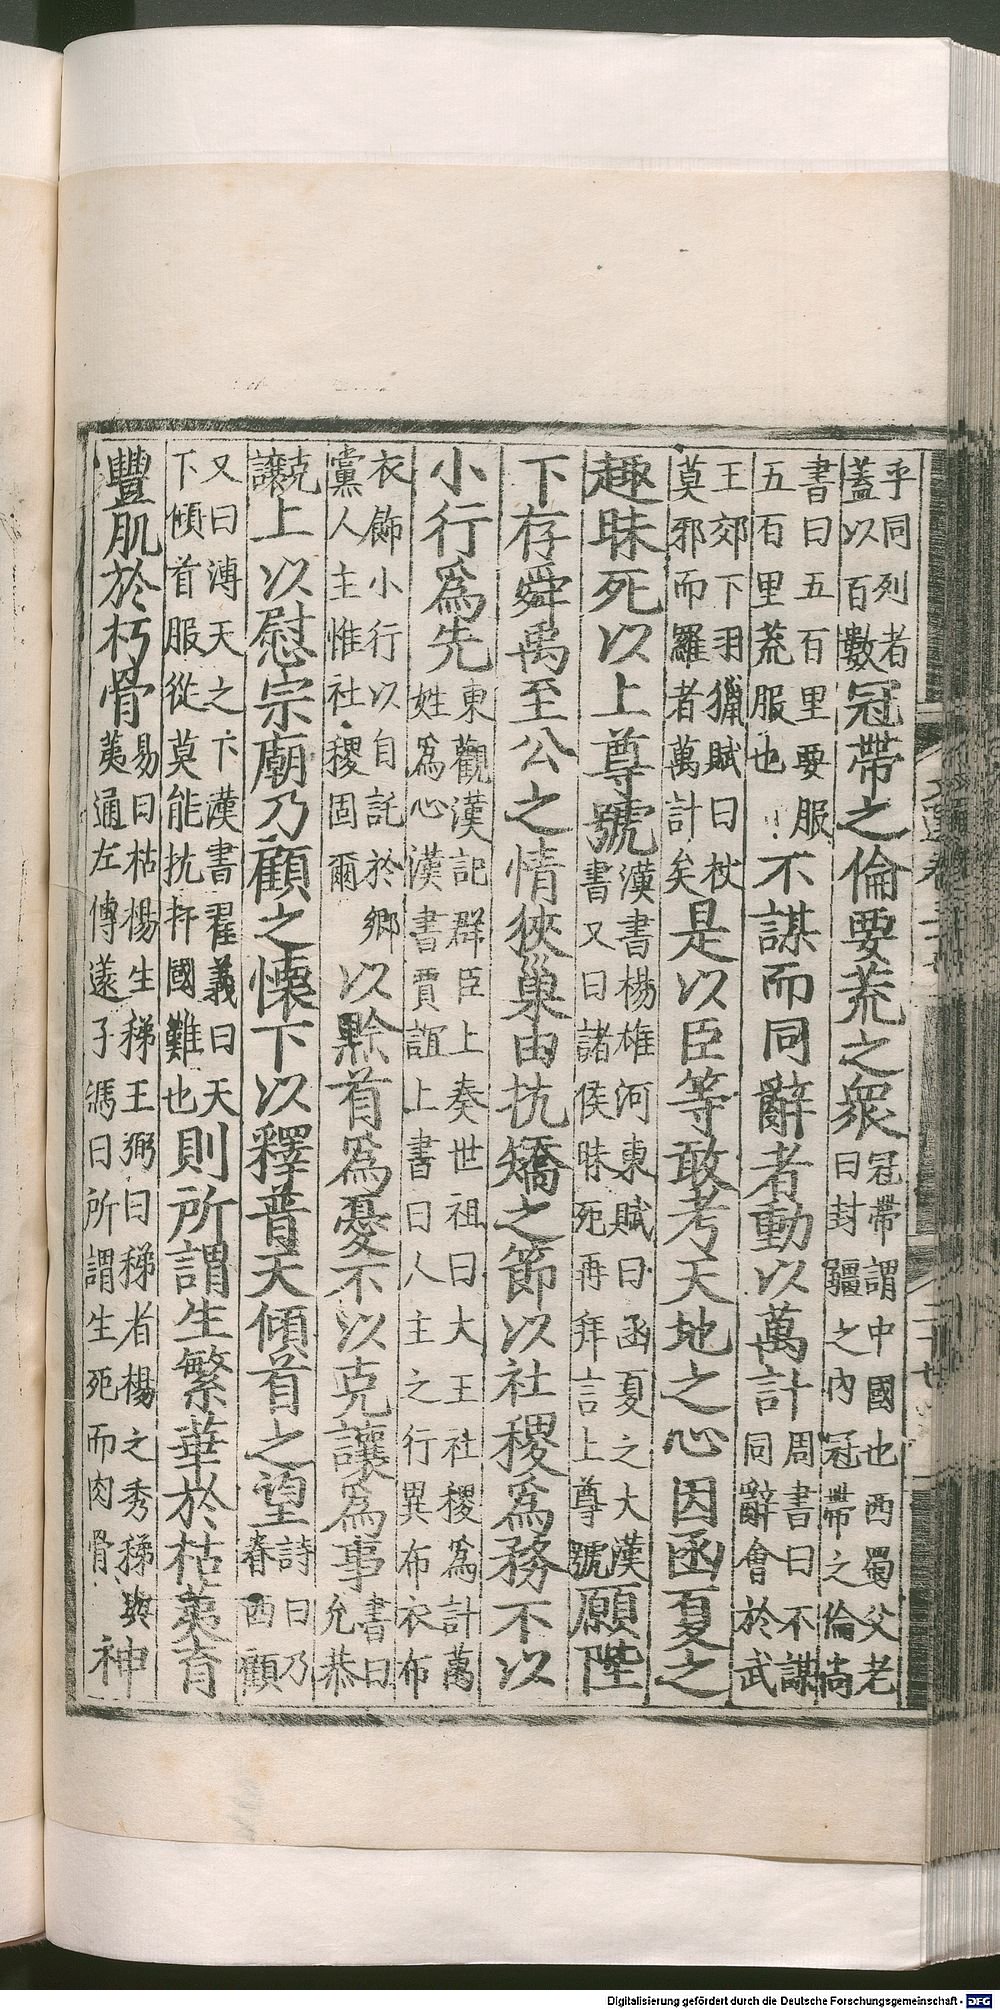 乎同列者蓋以百數冠帶之倫要荒之衆冠帶謂中國也西蜀父老曰封疆之內冠帶之倫尚
書曰五百里要服五百里荒服也不謀而同辭者動以萬計周書曰不謀同辭會於武
王郊下羽獵賦曰杖莫邪而羅者萬計矣是以臣等敢考天地之心因函夏之
趣昧死以上尊號漢書楊雄河東賦曰函夏之大漢書又曰諸侯昧死再拜言上尊號願陛
下存舜禹至公之情狹巢由抗矯之節以社稷爲務不以
小行爲先東觀漢記群臣上奏世祖曰大王社稷爲計萬姓爲心漢書賈誼上書曰人主之行異布衣布
衣飾小行以自託於鄉黨人主惟社稷固爾以黔首爲憂不以克讓爲事書曰允恭
克讓上以慰宗廟乃顧之懷下以釋普天傾首之望詩曰乃眷西顧
又曰溥天之下漢書翟義曰天下傾首服從莫能抗扞國難也則所謂生繁華於枯荑育
豐肌於朽骨易曰枯楊生稊王弼曰稊者楊之秀稊與荑通左傳薳子馮曰所謂生死而肉骨神
Digitalisierung gefördert durch die Deutsche Forschungsgemeinschaft - DFG